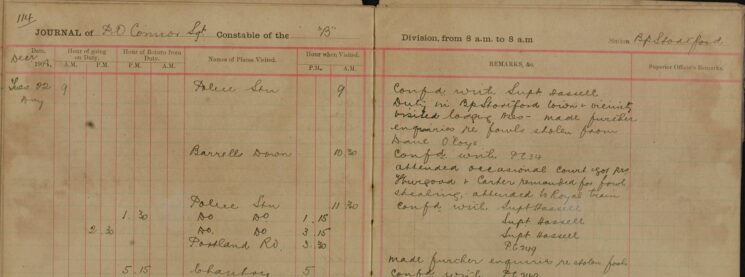 114
JOURNAL of D O Connor Sgt Constable of the "B" Division, from 8 a.m. to 8 a.m Station, Bp Stortford
Date, Hour of going on Duty. Hour of Return from Duty. Names of Places Visited. Hour when Visited. REMARKS, &c. Superior Officer's Remarks.
Decr 190 A.M. P.M. A.M. P.M. P.M. A.M.
22 9 Police Stn 9 Confd. with Supt Hassell
Day Duty in Bp Stortford town & vicinity
visited lodging - made further
enquiries re fowls stolen from
Dane
Barrells Down 10.30 Confd with PC 34
attended occasional Court
& Carter remanded for fowl
stealing. attended to Royal train
Police Stn 11 30 Confd. with Supt Hassell
1. 30 Do Do 1. 15 Supt Hassell
2. 30 Do. Do 3. 15 Supt Hassell
Portland Rd. 3. 30 PC 249
made further enquiries re stolen fowls
5. 15 5 Confd with